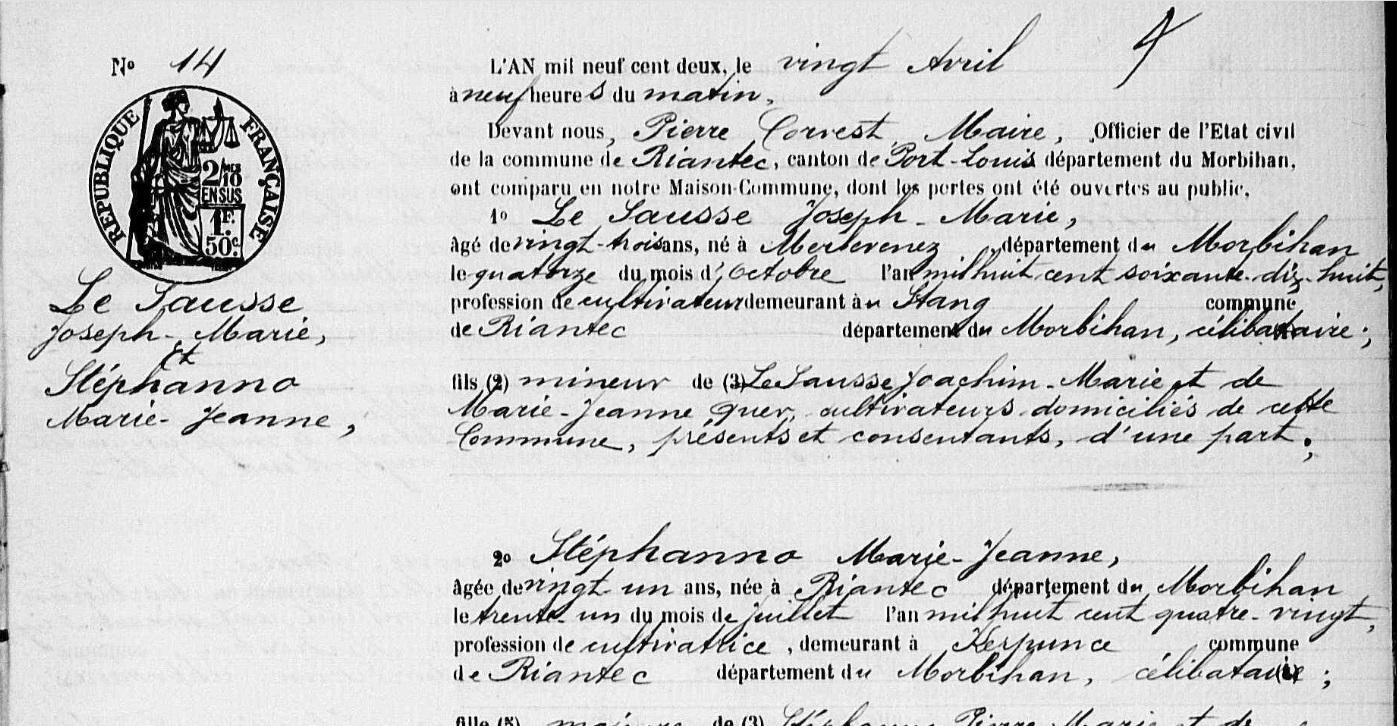 Nº 14
RÉPUBLIQUE FRANÇAISE
2/10
EN SUS
1 F.
50 c.
Le Sausse
Joseph-Marie,
Et
Stéphanno
Marie-Jeanne,
4
L'AN mil neuf cent deux, le vingt Avril
à neuf heures du matin,
Devant nous, Pierre Corvest, Maire, Officier de l'Etat civil
de la commune de Riantec, canton de Port-Louis département du Morbihan,
ont comparu en notre Maison-Commune, dont les portes ont été ouvertes au public,
1º Le Sausse Joseph-Marie,
âgé de vingt-trois ans, né à Merlevenez, département du Morbihan
le quatorze du mois d'Octobre l'an mil huit cent soixante-dix-huit,
profession de cultivateur demeurant au Stang commune
de Riantec département du Morbihan, célibataire ;
fils (2) mineur de (3) Le Sausse Joachim-Marie et de
Marie-Jeanne Quer, cultivateurs domiciliés de cette
Commune, présents et consentants, d'une part ;
2º Stéphanno Marie-Jeanne,
âgée de vingt un ans, née à Riantec département du Morbihan
le trente un du mois de juillet l'an mil huit cent quatre-vingt,
profession de cultivatrice, demeurant à Kerpunce commune
de Riantec département du Morbihan, célibataire ;
fille (5) majeure de (3) Stéphanno Pierre Marie et de